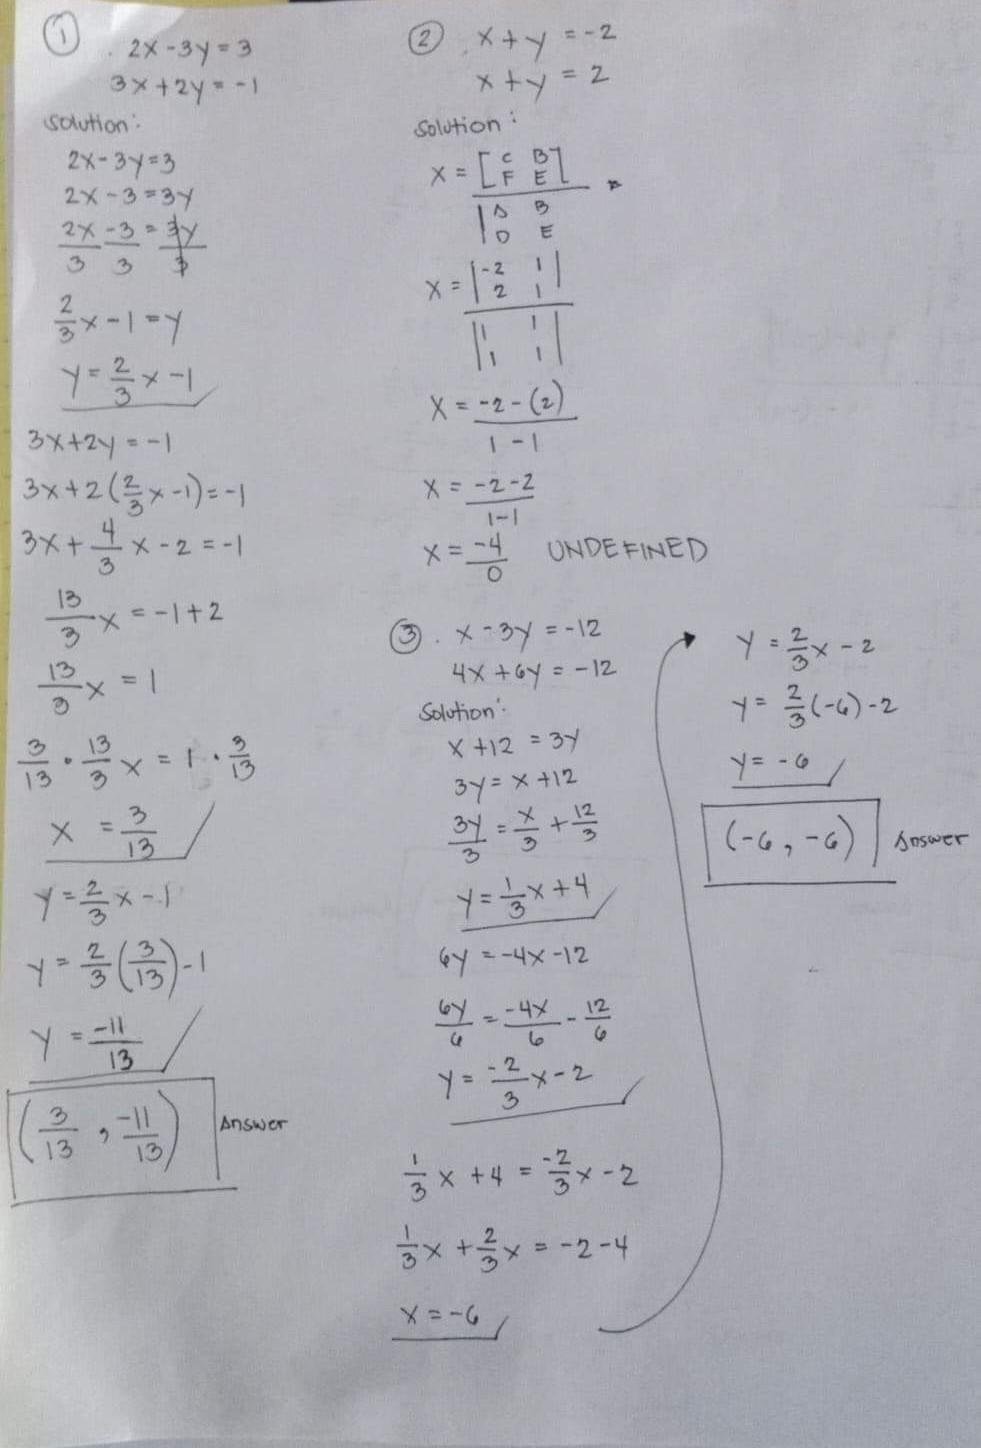 ① . 2x - 3y = 3
3x + 2y = -1
solution:
2x - 3y = 3
2x - 3 = 3y
2x/3 - 3/3 = 3y/3
2/3 x - 1 = y
y = 2/3 x - 1
3x + 2y = -1
3x + 2(2/3 x - 1) = -1
3x + 4/3 x - 2 = -1
13/3 x = -1 + 2
13/3 x = 1
3/13 · 13/3 x = 1 · 3/13
x = 3/13
y = 2/3 x - 1
y = 2/3 (3/13) - 1
y = -11/13
(3/13 , -11/13) Answer
② . x + y = -2
x + y = 2
Solution:
x = [C B
F E]
/
|A B
D E
x = |-2 1
2 1|
/
|1 1
1 1|
x = -2 - (2) / 1 - 1
x = -2 - 2 / 1 - 1
x = -4/0 UNDEFINED
③ . x - 3y = -12
4x + 6y = -12
Solution:
x + 12 = 3y
3y = x + 12
3y/3 = x/3 + 12/3
y = 1/3 x + 4
6y = -4x - 12
6y/6 = -4x/6 - 12/6
y = -2/3 x - 2
1/3 x + 4 = -2/3 x - 2
1/3 x + 2/3 x = -2 - 4
x = -6
y = 2/3 x - 2
y = 2/3 (-6) - 2
y = -6
(-6, -6) Answer